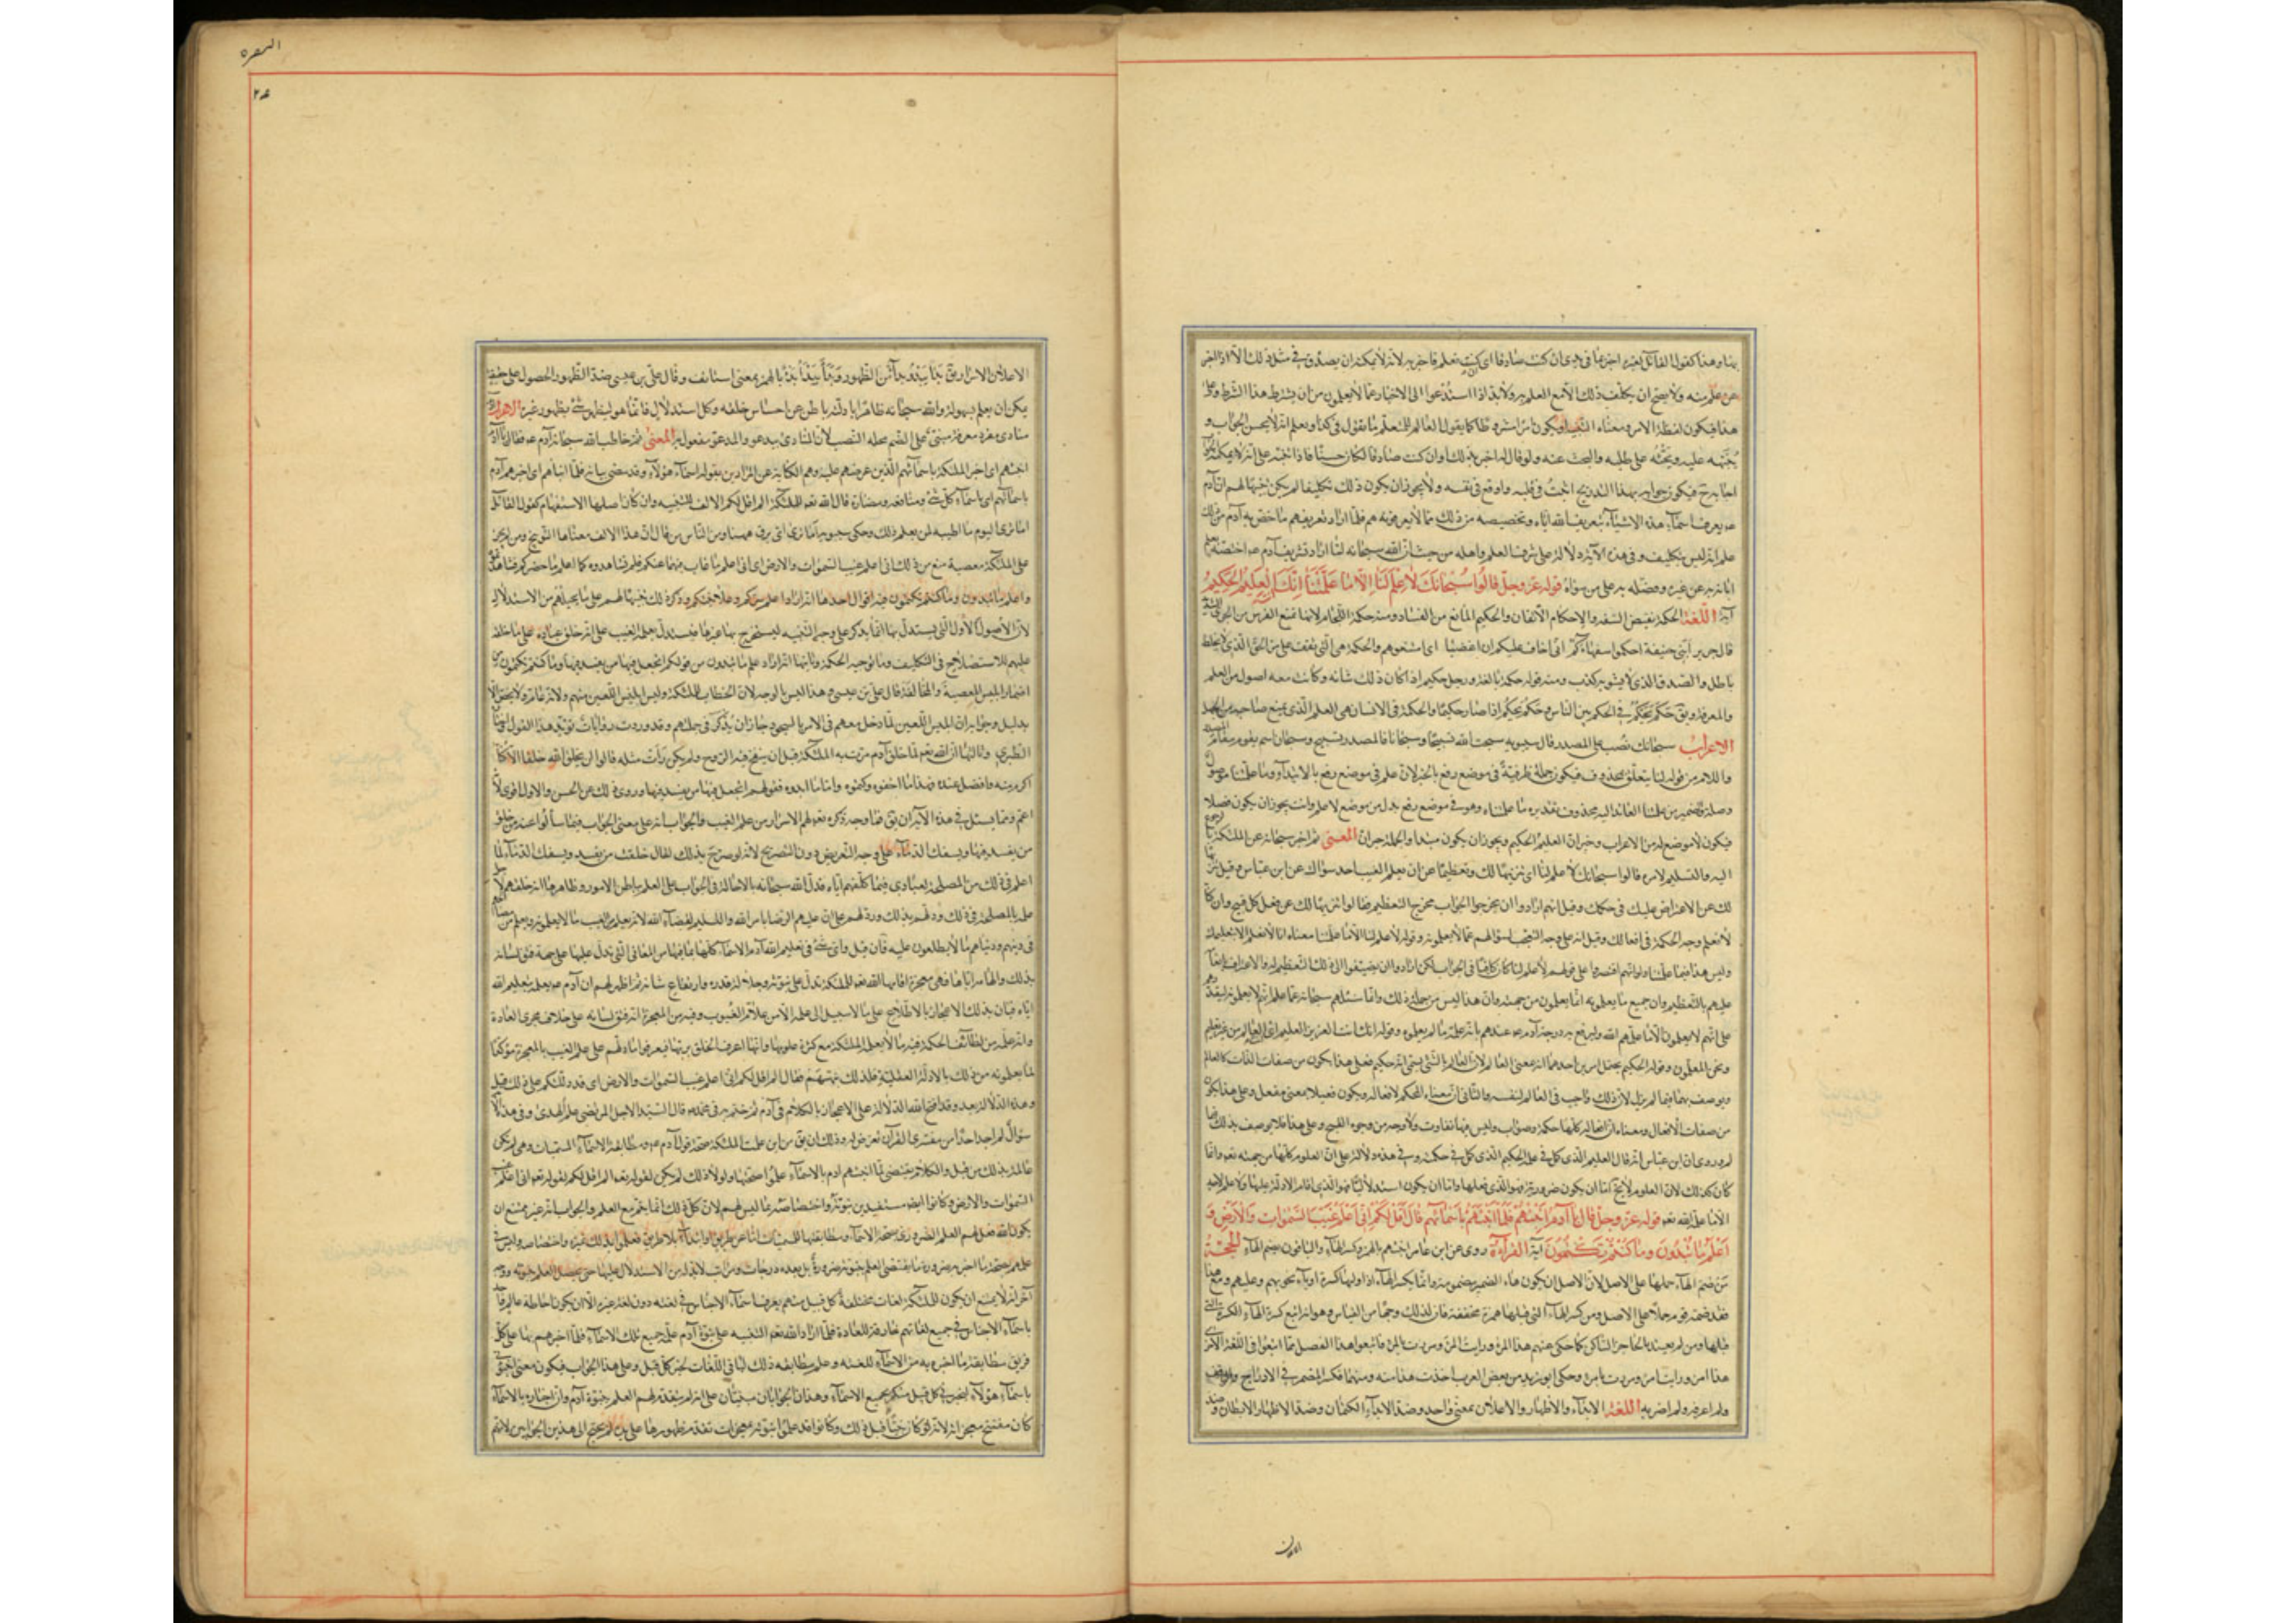 بينا وهذا كقول القائل لغيره اخبر بما في يدي ان كنت صادقا اى ان كنت تعلم فاخبر به لانه لا يمكنه ان يصدق في مثل ذلك الا اذا اخبر
عن علم منه ولا يصح ان يكلف ذلك الا مع العلم به ولا بد اذا استدعوا الى الاخبار عما لا يعلمون من ان يشترط هذا الشرط وعلى
هذا فيكون لفظة الامر ومعناه التنبيه او يكون امرا مشروطا كما يقول العالم للمتعلم ما تقول في كذا ويعلم انه لا يحسن الجواب و
ينبهه عليه ويحثه على طلبه والبحث عنه ولو قال له اخبر بذلك وان كنت صادقا لكان حسنا فاذا تنبه على انه لا يمكنه الجواب
اجابه ح فيكون جوابه بهذا التدريج اثبت في قلبه واوقع في نفسه ولا يجوز ان يكون ذلك تكليفا لم يكن تنبيها لهم ان آدم
عم يعرف اسماء هذه الاشياء بتعريف الله اياه وتخصيصه من ذلك بما لا يعرفونه هم فلما اراد تعريفهم ما خص به آدم من ذلك
علم انه ليس بتكليف وفى هذه الآية دلالة على شرف العلم واهله من حيث ان الله سبحانه لما اراد تشريف آدم عم اختصه بعلم
ابانه به عن غيره وفضله به على من سواه قوله عز وجل قالوا سبحانك لا علم لنا الا ما علمتنا انك انت العليم الحكيم
آية اللغة الحكمة نقيض السفه والاحكام الاتقان والحكيم المانع من الفساد ومنه حكمة اللجام لانها تمنع الفرس من الجرى الشديد
قال جرير ابنى حنيفة احكموا سفهاءكم انى اخاف عليكم ان اغضبا اى امنعوهم والحكمة هى التى تقف على مر الحق الذى لا يخلطه
باطل والصدق الذى لا يشوبه كذب ومنه قوله حكمة بالغة ورجل حكيم اذا كان ذلك شانه وكانت معه اصول من العلم
والمعرفة ويق حكم يحكم في الحكم بين الناس وحكم يحكم اذا صار حكيما والحكمة في الانسان هى العلم الذى يمنع صاحبه من الجهل
الاعراب سبحانك نصب على المصدر قال سيبويه سبحت الله تسبيحا وسبحانا فالمصدر تسبيح وسبحان اسم يقوم مقام المصدر
واللام من قوله لنا يتعلق بمحذوف فيكون جملة ظرفية في موضع رفع بالخبر لان علم في موضع رفع بالابتداء وما علمتنا موصول
وصلة والضمير من علمتنا العائد اليه محذوف تقديره ما علمتناه وهو في موضع رفع بدل من موضع لا علم وانت يجوز ان يكون فصلا
فيكون لا موضع له من الاعراب وخبر ان العليم الحكيم ويجوز ان يكون مبتدا والجملة خبر ان المعنى ثم اخبر سبحانه عن الملئكة بالرجوع
اليه والتسليم لامره قالوا سبحانك لا علم لنا اى تنزيها لك وتعظيما عن ان يعلم الغيب احد سواك عن ابن عباس وقيل تنزيها
لك عن الاعتراض عليك في حكمك وقيل انهم ارادوا ان يخرجوا الجواب مخرج التعظيم فقالوا تنزيها لك عن فعل كل قبيح وان كنا
لا نعلم وجه الحكمة في افعالك وقيل انه على وجه التعجب لسؤالهم عما لا يعلمونه وقوله لا علم لنا الا ما علمتنا معناه انا لا نعلم الا بتعليمك
وليس هذا فيما علمتنا ولو انهم اقتصروا على قولهم لا علم لنا كان كافيا في الجواب لكن ارادوا ان يضيفوا الى ذلك التعظيم له والاعتراف بانعامه
عليهم بالتعظيم وان جميع ما يعلمونه انما يعلمون من جهته وان هذا ليس من جملة ذلك وانما سئلهم سبحانه عما علم انهم لا يعلمونه ليقررهم
على انهم لا يعلمون الا ما علمهم الله وليرفع به درجة آدم عم عندهم بانه علمه ما لم يعلموه وقوله انك انت العليم اى العالم من غير تعليم
ونحن المعلمون وقوله الحكيم يحتمل امرين احدهما انه بمعنى العالم لان العالم بالشئ يسمى انه حكيم فعلى هذا يكون من صفات الذات كالعالم
ويوصف بهما فيما لم يزل لان ذلك واجب في العالم لنفسه والثانى ان معناه المحكم لافعاله ويكون فعيلا بمعنى مفعل وعلى هذا يكون
من صفات الافعال ومعناه ان افعاله كلها حكمة وصواب وليس فيها تفاوت ولا وجه من وجوه القبح وعلى هذا فلا يوصف بذلك فيما
لم يزل وروى ان ابن عباس انه قال العليم الذى كمل في علمه الحكيم الذى كمل في حكمته وفى هذه دلالة على ان العلوم كلها من جهته تعم وانما
كان كذلك لان العلوم لا يخ اما ان يكون ضرورية فهو الذى فعلها واما ان يكون استدلالية فهو الذى اقام الادلة عليها فلا علم لاحد
الا ما علمه الله تعم قوله عز وجل قال يا آدم انبئهم باسمائهم فلما انبأهم باسمائهم قال الم اقل لكم انى اعلم غيب السموات والارض و
اعلم ما تبدون وما كنتم تكتمون آية القراءة روى عن ابن عامر انبئهم بالهمز وكسر الهاء والباقون بضم الهاء الحجة
من ضم الهاء حملها على الاصل لان الاصل ان يكون هاء الضمير مضمومة وانما يكسر الهاء اذا وليها كسرة او ياء نحو بهم وعليهم ومع هذا
فقد ضمه قوم حملا على الاصل ومن كسر الهاء التى قبلها همزة مخففة فان لذلك وجها من القياس وهو انه اتبع كسرة الهاء الكسرة التى
قبلها ومن لم يعتد بالحاجز الساكن كما حكى عنهم هذا المرء ورايت المرء ومررت بالمرء فاتبعوا هذا الفصل
هذا امرء ورايت امرء ومررت بامرء وحكى ابو زيد عن بعض العرب اخذت هذا منه ومنهما فكسر المضمر في الادراج والوقف
ولم اعرفه ولم اضربه اللغة الابداء والاظهار والاعلان بمعنى واحد وضد الابداء الكتمان وضد الاظهار الابطان وضد
الاعلان
البقرة
٢٤
الاعلان الاسرار يق بدا يبدو بدا من الظهور وبدا يبدا بدءا بالهمز بمعنى استانف وقال على بن عيسى ضد الظهور الحصول على حقيقة
يمكن ان يعلم بسهولة والله سبحانه ظاهر بادلته باطن عن احساس خلقه وكل استدلال فانما هو ليظهر شئ بظهور غيره الاعراب آدم
منادى مفرد معرفة مبنى على الضم محله النصب لان المنادى مدعو والمدعو مفعول به المعنى ثم خاطب الله سبحانه آدم عم فقال يا آدم
انبئهم اى اخبر الملئكة باسمائهم الذين عرضهم عليه وهم كناية عن المرادين بقوله اسماء هؤلاء وقد مضى بيانه فلما انباهم اى اخبرهم آدم
باسمائهم اى باسماء كل شئ ومنافعه ومضاره قال الله تعم للملئكة الم اقل لكم الالف للتنبيه وان كان اصلها الاستفهام كقول القائل
اما ترى اليوم ما اطيبه لمن يعلم ذلك وحكى سيبويه اما ترى اى برق ههنا ومن الناس من قال ان هذا الالف معناها التوبيخ ومن لم يجز
على الملئكة معصية منع من ذلك انى اعلم غيب السموات والارض اى انى اعلم ما غاب فيهما عنكم فلم تشاهدوه كما اعلم ما حضركم فشاهدتموه
واعلم ما تبدون وما كنتم تكتمون فيه اقوال احدها انه اراد اعلم سركم وعلانيتكم وذكر ذلك تنبيها لهم على ما يحيلهم من الاستدلال
لان الاصول الاول التى يستدل بها انما يذكر على وجه التنبيه ليستخرج بها غيرها فيستدل بعلمه الغيب على انه خلق عباده على ما خلقهم
عليهم للاستصلاح في التكليف وما توجبه الحكمة وثانيها انه اراد اعلم ما تبدون من قولكم اتجعل فيها من يفسد فيها وما كنتم تكتمون من
اضمار ابليس المعصية والمخالفة قال على بن عيسى وهذا ليس بالوجه لان الخطاب للملئكة وليس ابليس اللعين منهم ولانه عام فلا يخص الا
بدليل وجوابه ان ابليس اللعين لما دخل معهم في الامر بالسجود جاز ان يذكر في جملتهم وقد وردت روايات تؤيد هذا القول
الطبرى وثالثها ان الله تعم لما خلق آدم مرت به الملئكة قبل ان ينفخ فيه الروح ولم يكن رأت مثله قالوا لن يخلق الله خلقا الا كنا
اكرم منه وافضل عنده فهذا ما اخفوه وكتموه واما ما ابدوه فقولهم اتجعل فيها من يفسد فيها وروى ذلك عن الحسن والاول اقوى لانه
اعم ومما يسئل في هذه الآية ان يق فما وجه ذكره تعم لهم الاسرار من علم الغيب والجواب انه على معنى الجواب فيما سألوا عنه من خلق
من يفسد فيها ويسفك الدماء على وجه التعريض دون التصريح لانه لو صرح بذلك لقال خلقت من يفسد ويسفك الدماء لما
اعلم في ذلك من المصلحة لعبادى فيما كلفتهم اياه فدل الله سبحانه بالاحالة في الجواب على العلم بباطن الامور وظاهرها انه خلقهم لاجل
علمه بالمصلحة في ذلك ودلهم بذلك على ان عليهم الرضا بامر الله والتسليم لقضاء الله لانه يعلم من الغيب ما لا يعلمونه ويعلم من مصالحهم
في دينهم ودنياهم ما لا يطلعون عليه فان قيل واى شئ في تعليم الله آدم الاسماء كلها بما فيها من المعانى التى تدل عليها على جهة فتق لسانه
بذلك والهامه اياها فهى معجزة اقامها الله تعم للملئكة تدل على نبوته وجلالة قدره وارتفاع شانه ثم اظهر لهم ان آدم عم يعلمه بتعليم الله
اياه فبان بذلك الاعجاز بالاطلاع على ما لا سبيل الى علمه الا من علام الغيوب وفيه من المعجزة انه فتق لسانه على خلاف مجرى العادة
وانه علمه من لطائف الحكمة فيه ما لا يعلمه الملئكة مع كثرة علومها وانها اعرف الخلق بربها فيعرفوا ما دلهم على علم الغيب بالمعجزة مؤكدا
لما يعلمونه من ذلك بالادلة العقلية فلذلك نبههم فقال الم اقل لكم انى اعلم غيب السموات والارض اى قد دللتكم على ذلك قبل
وهذه الدلالة بعد وقد افتتح الله الدلالة على الاعجاز بالكلام في آدم ثم ختم به في محمد ص قال السيد الاجل المرتضى علم الهدى وفى هذه الآية
سؤال لم اجد احدا من مفسرى القرآن تعرض له وذلك ان يق من اين علمت الملئكة صحة قول آدم عم ومطابقة الاسماء المسميات وهى لم تكن
عالمة بذلك من قبل والكلام يقتضى لما انبئهم ادم بالاسماء علموا صحتها ولولا ذلك لم يكن لقوله تعم الم اقل لكم انى اعلم غيب
السموات والارض وكانوا ايضا مستفيدين نبوته واختصاصه بما ليس لهم لان كل ذلك انما يتم مع العلم والجواب انه غير ممتنع ان
يكون الله فعل لهم العلم الضرورى بصحة الاسماء ومطابقتها للمسميات اما عن طريق او ابتداء بلا طريق فعلموا بذلك تميزه واختصاصه وليس في
علمهم بصحة ما اخبر به ضرورة ما يقتضى العلم بنبوته ضرورة بل بعده درجات ومراتب لا بد من الاستدلال عليها حتى يحصل العلم بنبوته ووجه
آخر انه لا يمتنع ان يكون للملئكة لغات مختلفة كل قبيل منهم يعرف اسماء الاجناس في لغته دون لغة غيره الا ان يكون احاطة عالم واحد
باسماء الاجناس في جميع لغاتهم خارقة للعادة فلما اراد الله تعم التنبيه على نبوة آدم علمه جميع تلك الاسماء فلما اخبرهم بها علم كل
فريق مطابقة ما اخبر به من الاسماء للغته وعلم مطابقة ذلك لباقى اللغات بخبر كل قبيل وعلى هذا الجواب فيكون معنى انبئونى
باسماء هؤلاء ليخبرنى كل قبيل منكم بجميع الاسماء وهذان الجوابان مبنيان على انه لم يتقدم لهم العلم بنبوة آدم وان اخباره بالاسماء
كان مفتتح معجزاته لانه لو كان نبيا قبل ذلك وكانوا قد علموا نبوته بمعجزات تقدم ظهورها على يده لم يحتج الى هذين الجوابين لانهم